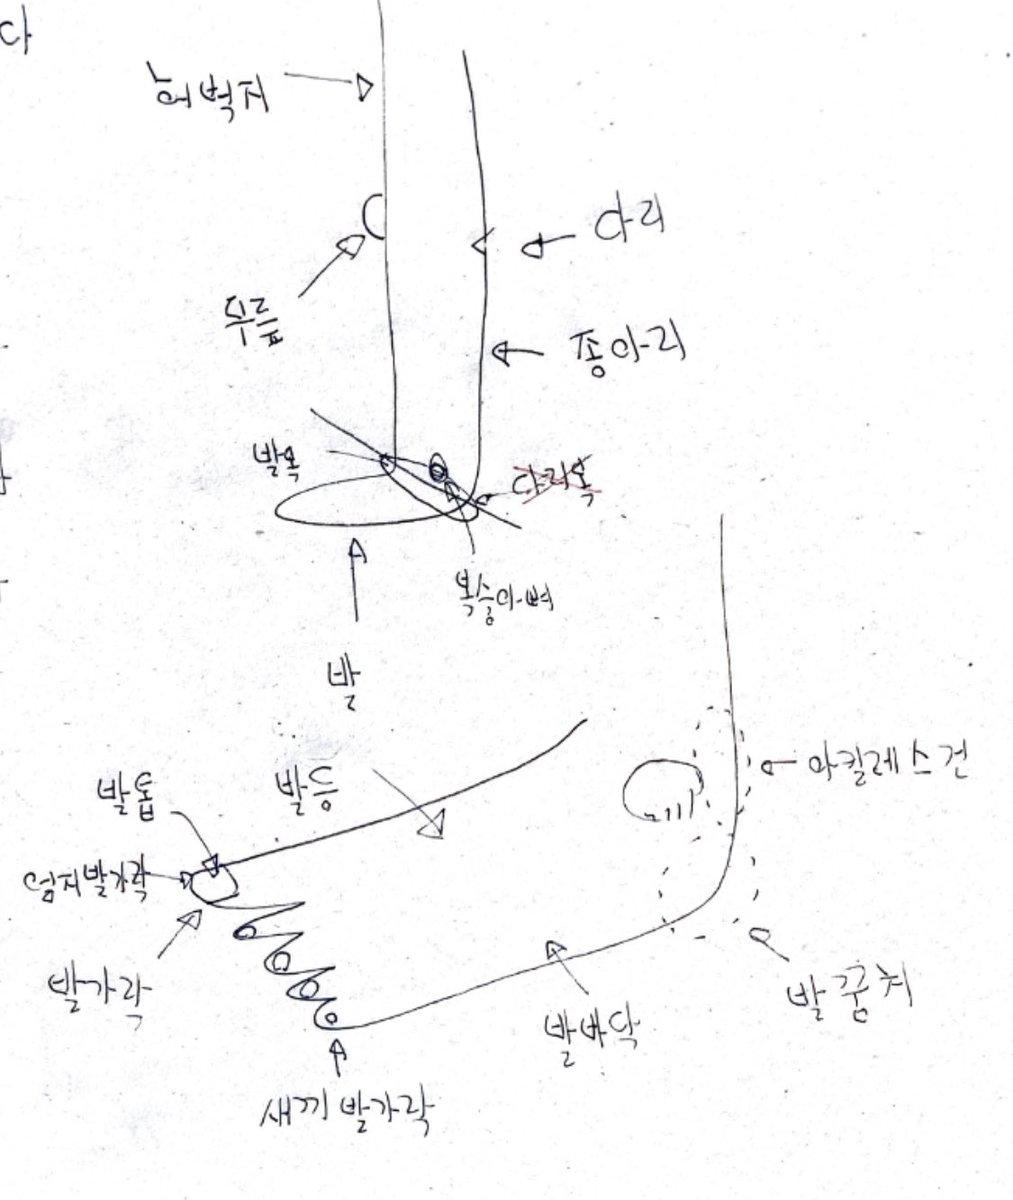 다
허벅지
다리
무릎
종아리
발목
다리목
복숭아뼈
발
아킬레스건
발톱
발등
엄지발가락
발가락
발꿈치
발바닥
새끼 발가락